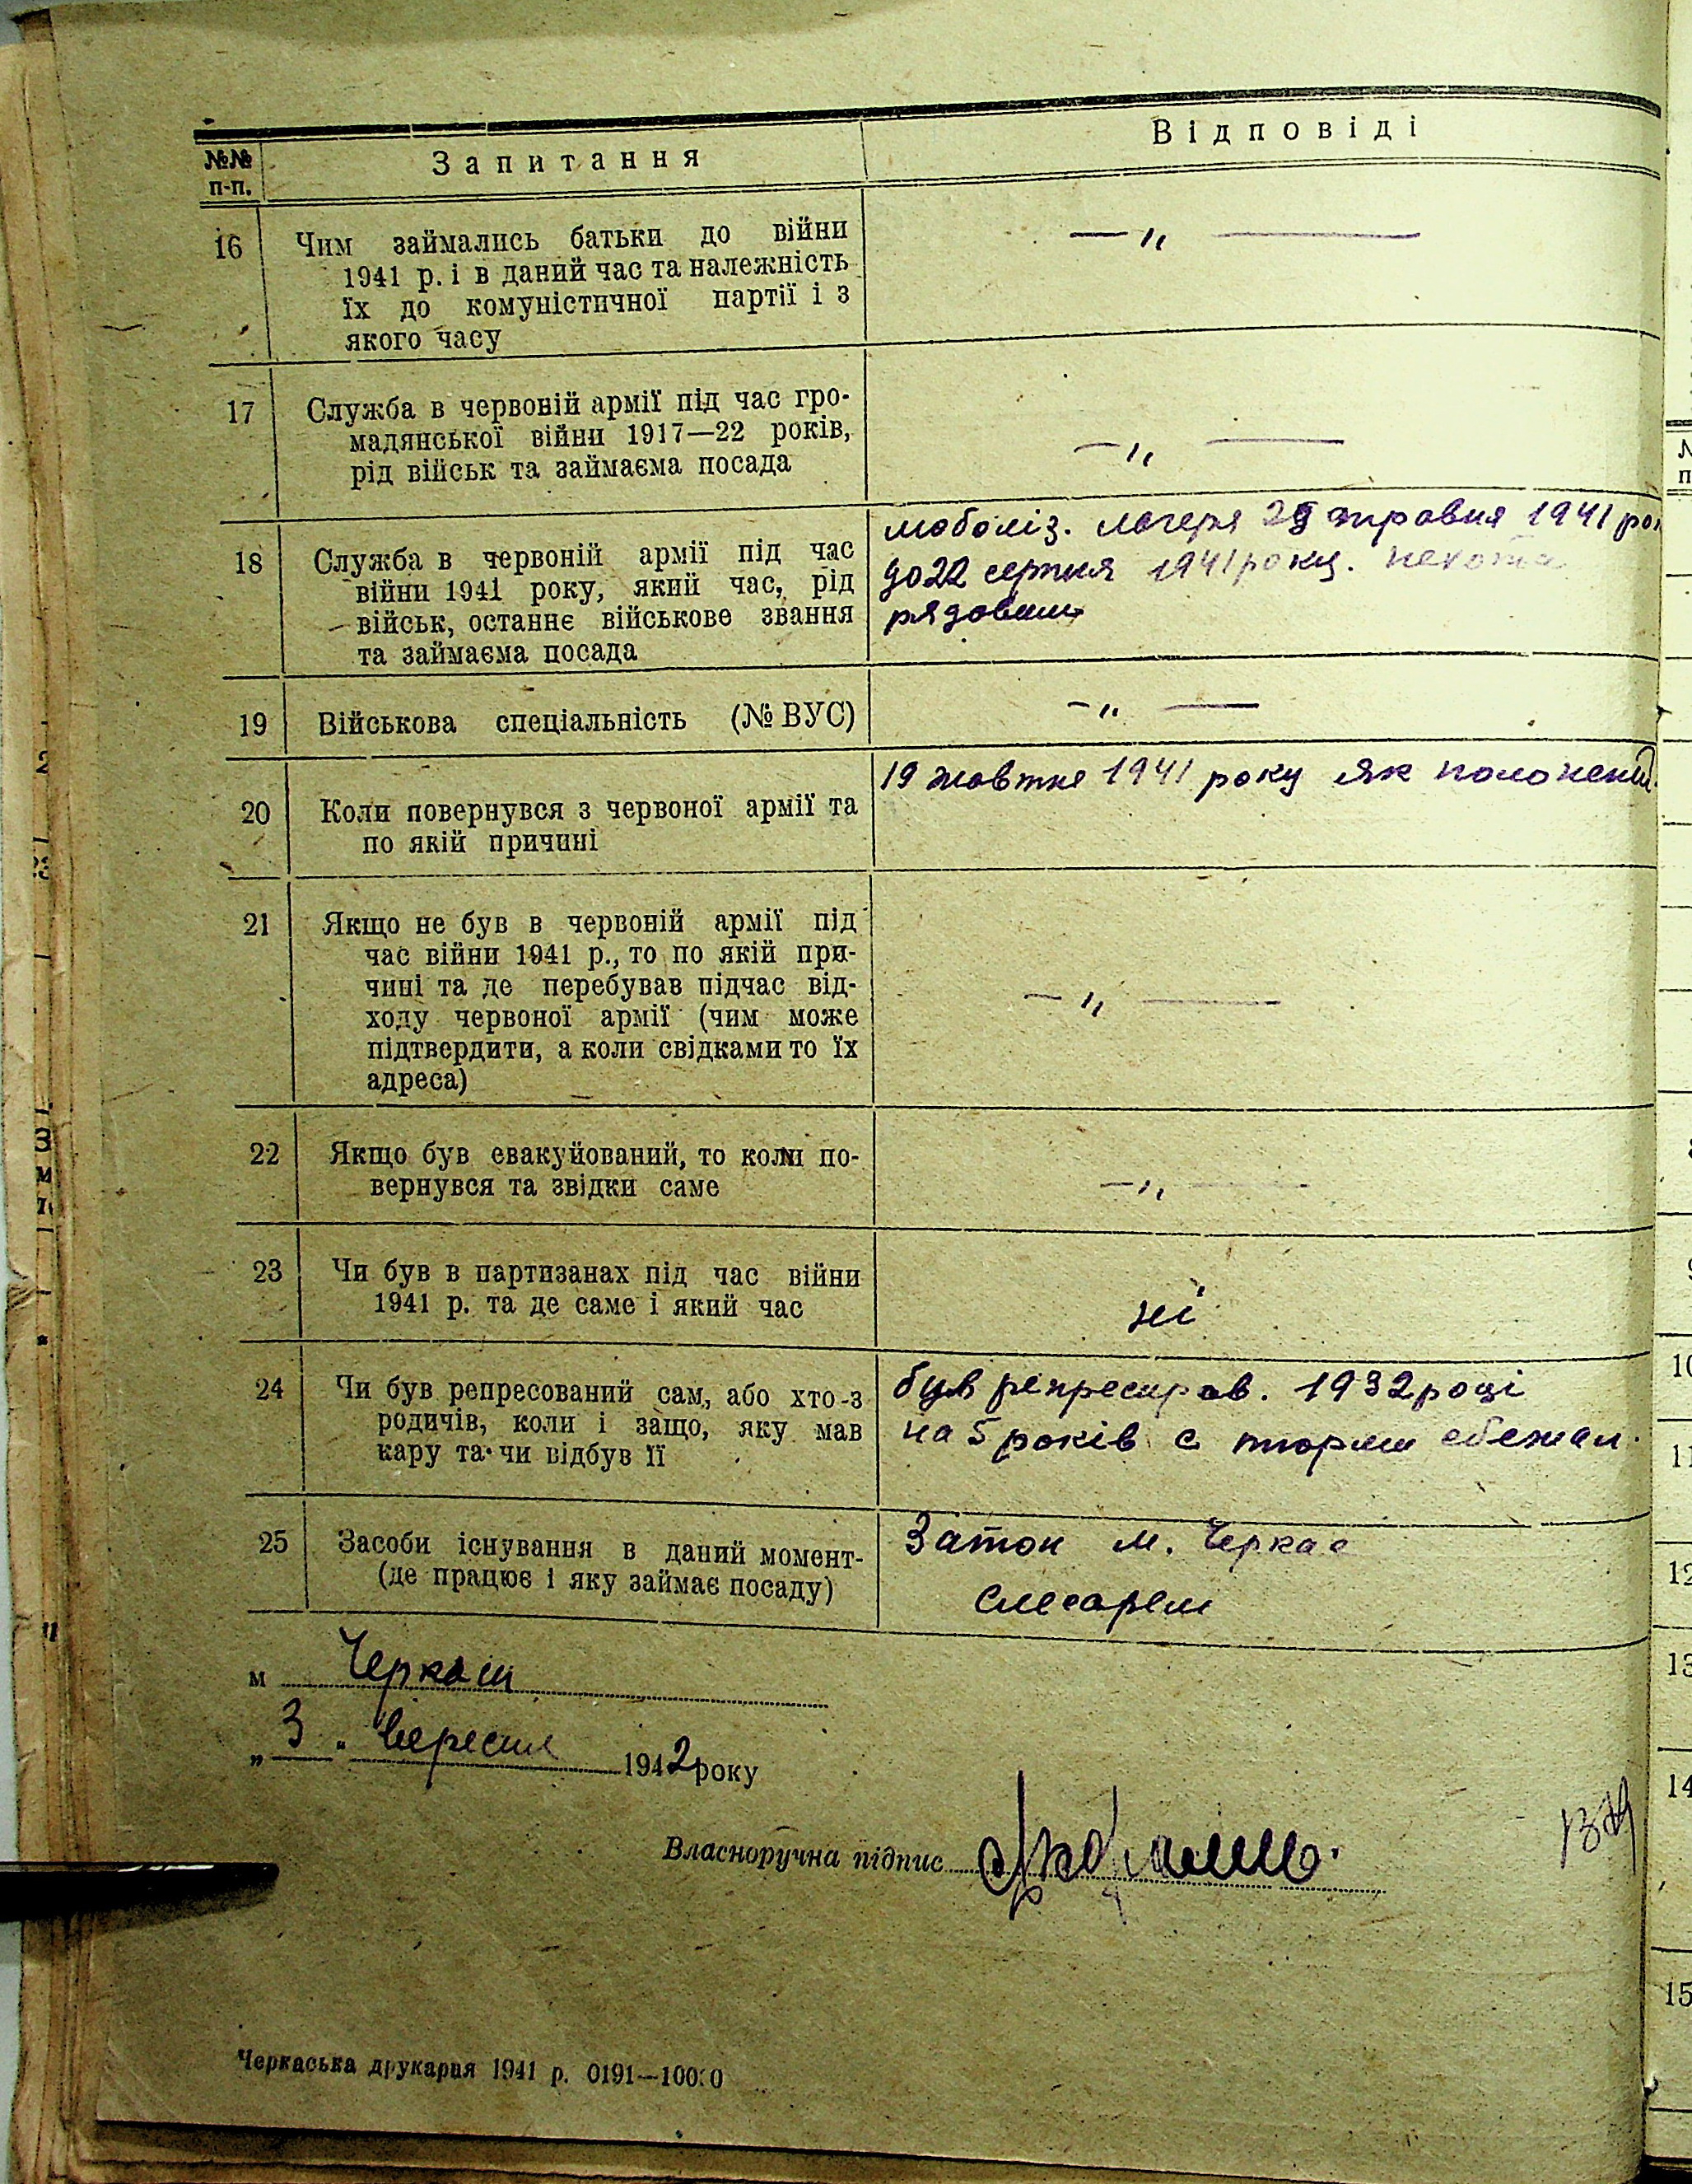 №№ п-п.
Запитання
Відповіді
16
Чим займались батьки до війни
1941 р. і в даний час та належність
їх до комуністичної партії і з
якого часу
— „ —
17
Служба в червоній армії під час гро-
мадянської війни 1917—22 років,
рід військ та займаєма посада
— „ —
18
Служба в червоній армії під час
війни 1941 року, який час, рід
військ, останнє військове звання
та займаєма посада
мобіліз. лагеря 29 травня 1941 рок
до 22 серпня 1941 року. пехота
рядовим
19
Військова спеціальність (№ ВУС)
— „ —
20
Коли повернувся з червоної армії та
по якій причині
19 жовтня 1941 року як полонений.
21
Якщо не був в червоній армії під
час війни 1941 р., то по якій при-
чині та де перебував підчас від-
ходу червоної армії (чим може
підтвердити, а коли свідками то їх
адреса)
— „ —
22
Якщо був евакуйований, то коли по-
вернувся та звідки саме
— „ —
23
Чи був в партизанах під час війни
1941 р. та де саме і який час
ні
24
Чи був репресований сам, або хто-з
родичів, коли і защо, яку мав
кару та чи відбув її
був репресиров. 1932 році
на 5 років с тюрми сбежал.
25
Засоби існування в даний момент-
(де працює і яку займає посаду)
Затон м. Черкас
слесарем
м Черкаси
„ 3 " вересня 1942 року
Власноручна підпис
Черкаська друкарня 1941 р. 0191—10000